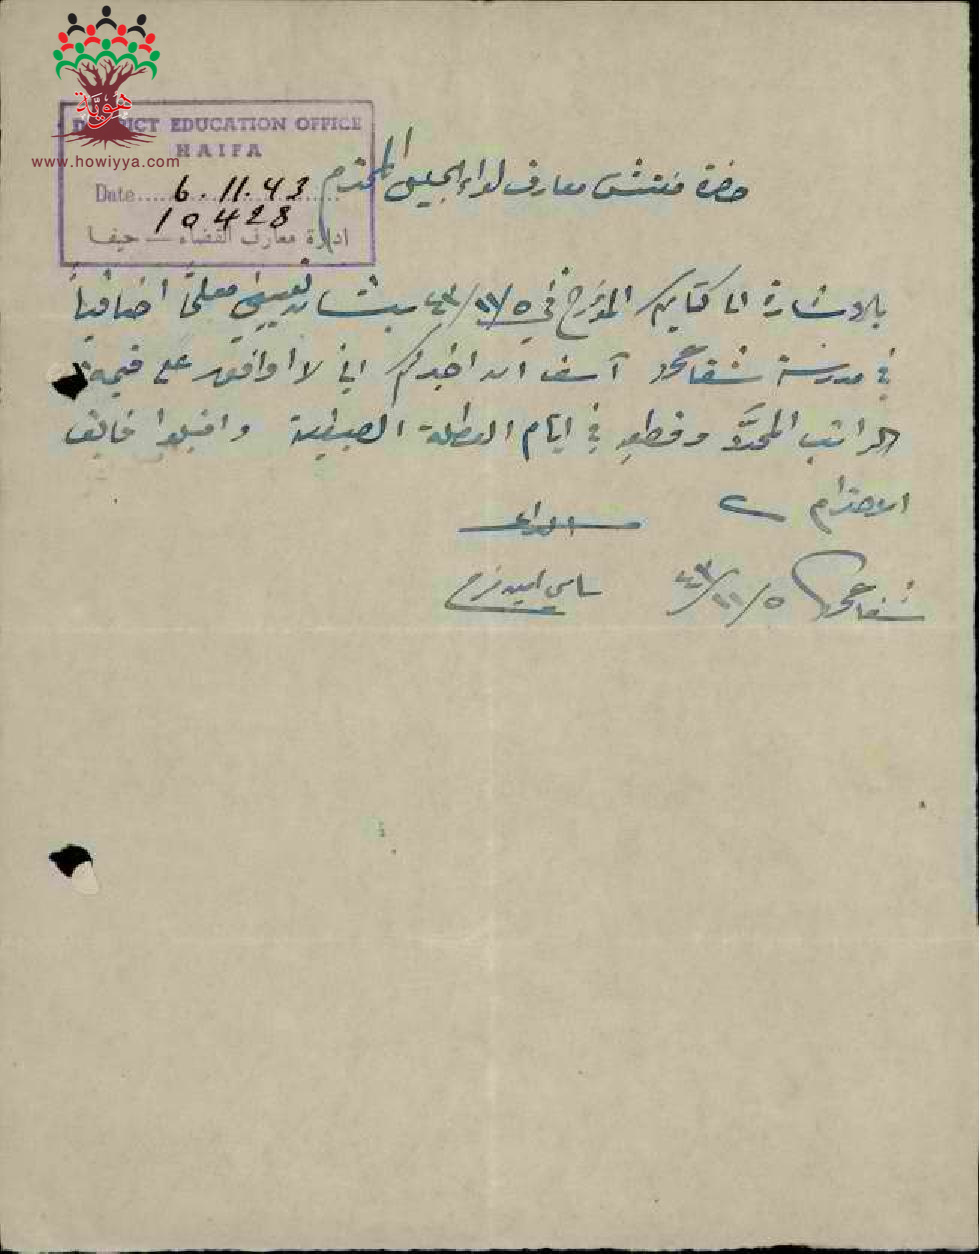 هوية
www.howiyya.com
DISTRICT EDUCATION OFFICE
HAIFA
Date..... 6.11.43
10428
ادارة معارف القضاء — حيفا
حضرة مفتش معارف لواء الجليل المحترم
بالاشارة الى كتابكم المؤرخ في ٥/١١/٤٣ بشأن تعييني معلماً اضافياً
في مدرسة شفاعمرو آسف ان اخبركم اني لا اوافق على قيمة
الراتب المحدد وقطعه في ايام العطلة الصيفية واقبلوا فائق
الاحترام
الداعي
شفاعمرو ٥/١١/٤٣
سامي امين فرح